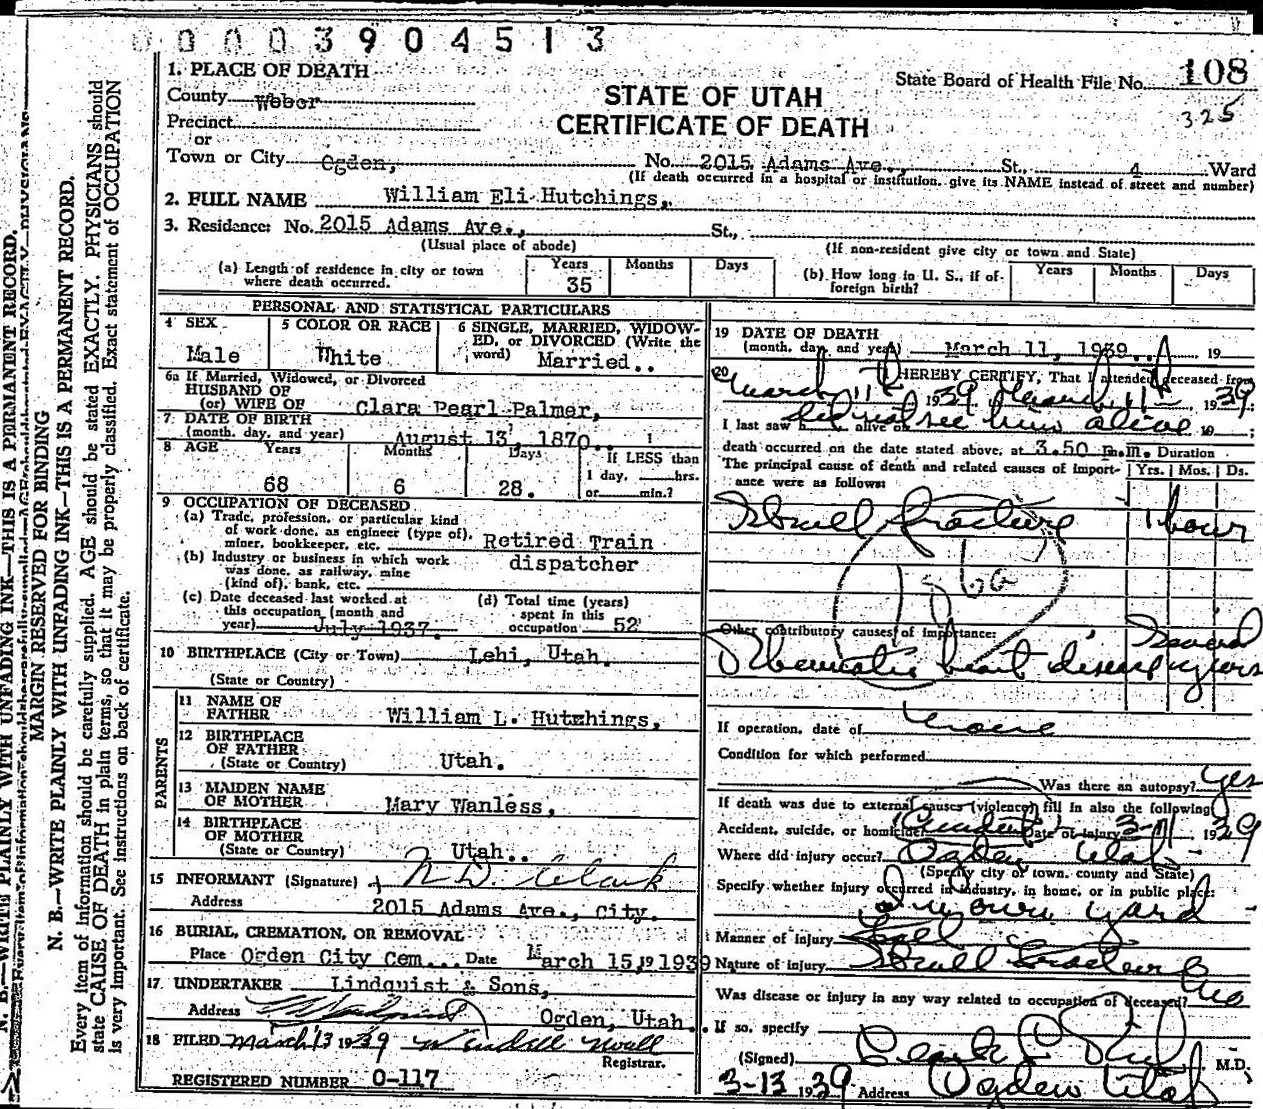 0 0 0 0 3 9 0 4 5 1 3
1. PLACE OF DEATH
County Weber
Precinct
or
Town or City Ogden,
STATE OF UTAH
CERTIFICATE OF DEATH
State Board of Health File No. 108
325
No. 2015 Adams Ave., St., 4 Ward
(If death occurred in a hospital or institution, give its NAME instead of street and number)
2. FULL NAME William Eli Hutchings,
3. Residence: No. 2015 Adams Ave., St.,
(Usual place of abode) (If non-resident give city or town and State)
(a) Length of residence in city or town where death occurred. Years 35 Months Days
(b) How long in U. S., if of foreign birth? Years Months Days
PERSONAL AND STATISTICAL PARTICULARS
4 SEX Male
5 COLOR OR RACE White
6 SINGLE, MARRIED, WIDOWED, or DIVORCED (Write the word) Married..
6a If Married, Widowed, or Divorced
HUSBAND OF
(or) WIFE OF Clara Pearl Palmer,
7 DATE OF BIRTH
(month, day, and year) August 13, 1870.
8 AGE Years Months Days If LESS than
1 day, hrs.
68 6 28. or min.?
9 OCCUPATION OF DECEASED
(a) Trade, profession, or particular kind
of work done, as engineer (type of),
miner, bookkeeper, etc. Retired Train
(b) Industry or business in which work dispatcher
was done, as railway, mine
(kind of), bank, etc.
(c) Date deceased last worked at
this occupation (month and
year) July 1937.
(d) Total time (years)
spent in this
occupation 52
10 BIRTHPLACE (City or Town) Lehi, Utah.
(State or Country)
PARENTS
11 NAME OF
FATHER William L. Hutchings,
12 BIRTHPLACE
OF FATHER
(State or Country) Utah.
13 MAIDEN NAME
OF MOTHER Mary Wanless,
14 BIRTHPLACE
OF MOTHER
(State or Country) Utah..
15 INFORMANT (Signature) N. D. Clark
Address 2015 Adams Ave., City.
16 BURIAL, CREMATION, OR REMOVAL
Place Ogden City Cem... Date March 15, 19 1939
17. UNDERTAKER Lindquist & Sons,
Address Ogden, Utah.
18 FILED March 13 1939 Wendell Noall
Registrar.
REGISTERED NUMBER 0-117
19 DATE OF DEATH
(month, day, and year) March 11, 1939. 19
20 I HEREBY CERTIFY, That I attended deceased from
March 11th 1939, to March 11th 1939
I last saw h alive on did not see him alive 19 ;
death occurred on the date stated above, at 3.50 p.m. Duration
The principal cause of death and related causes of importance were as follows: Yrs. Mos. Ds.
Skull fracture 1 hour
Other contributory causes of importance:
Rheumatic heart disease Several years
If operation, date of none
Condition for which performed
Was there an autopsy? yes
If death was due to external causes (violence) fill in also the following
Accident, suicide, or homicide Accident Date of injury 3-11, 1939
Where did injury occur? Ogden Utah
(Specify city or town, county and State)
Specify whether injury occurred in industry, in home, or in public place:
In own yard
Manner of injury Fall
Nature of injury Skull fracture
Was disease or injury in any way related to occupation of deceased? no
If so, specify
(Signed) M.D.
3-13 1939 Address Ogden Utah
N. B.—WRITE PLAINLY WITH UNFADING INK—THIS IS A PERMANENT RECORD.
MARGIN RESERVED FOR BINDING
N. B.—WRITE PLAINLY WITH UNFADING INK—THIS IS A PERMANENT RECORD.
Every item of information should be carefully supplied. AGE should be stated EXACTLY. PHYSICIANS should
state CAUSE OF DEATH in plain terms, so that it may be properly classified. Exact statement of OCCUPATION
is very important. See instructions on back of certificate.